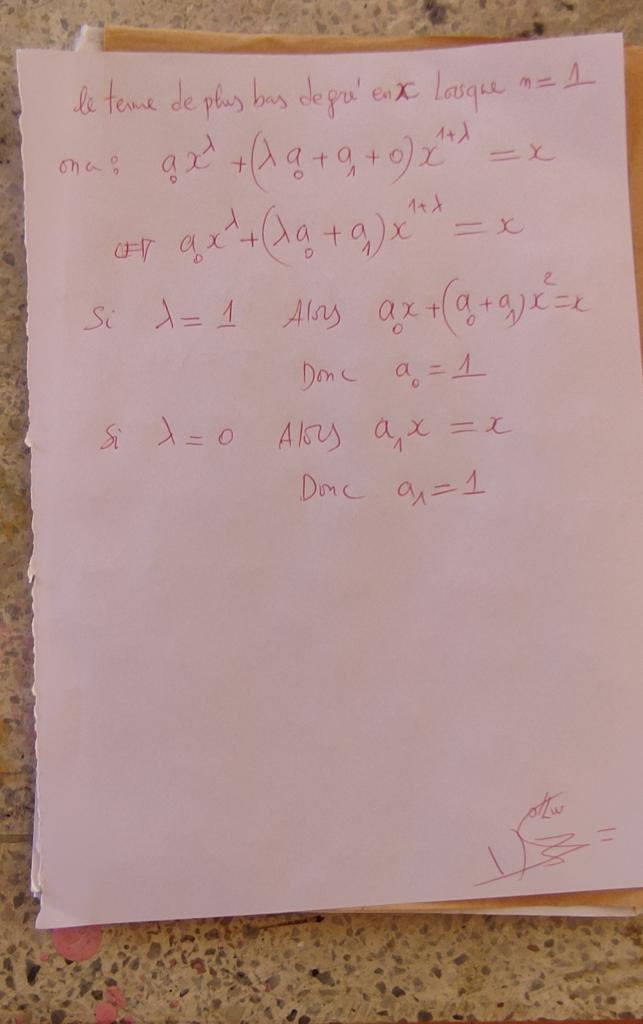 le terme de plus bas degré en x Lorsque n = 1
on a : a₀x^λ + (λa₀ + a₁ + 0)x^{1+λ} = x
⟺ a₀x^λ + (λa₀ + a₁)x^{1+λ} = x
Si λ = 1 Alors a₀x + (a₀ + a₁)x² = x
Donc a₀ = 1
Si λ = 0 Alors a₁x = x
Donc a₁ = 1